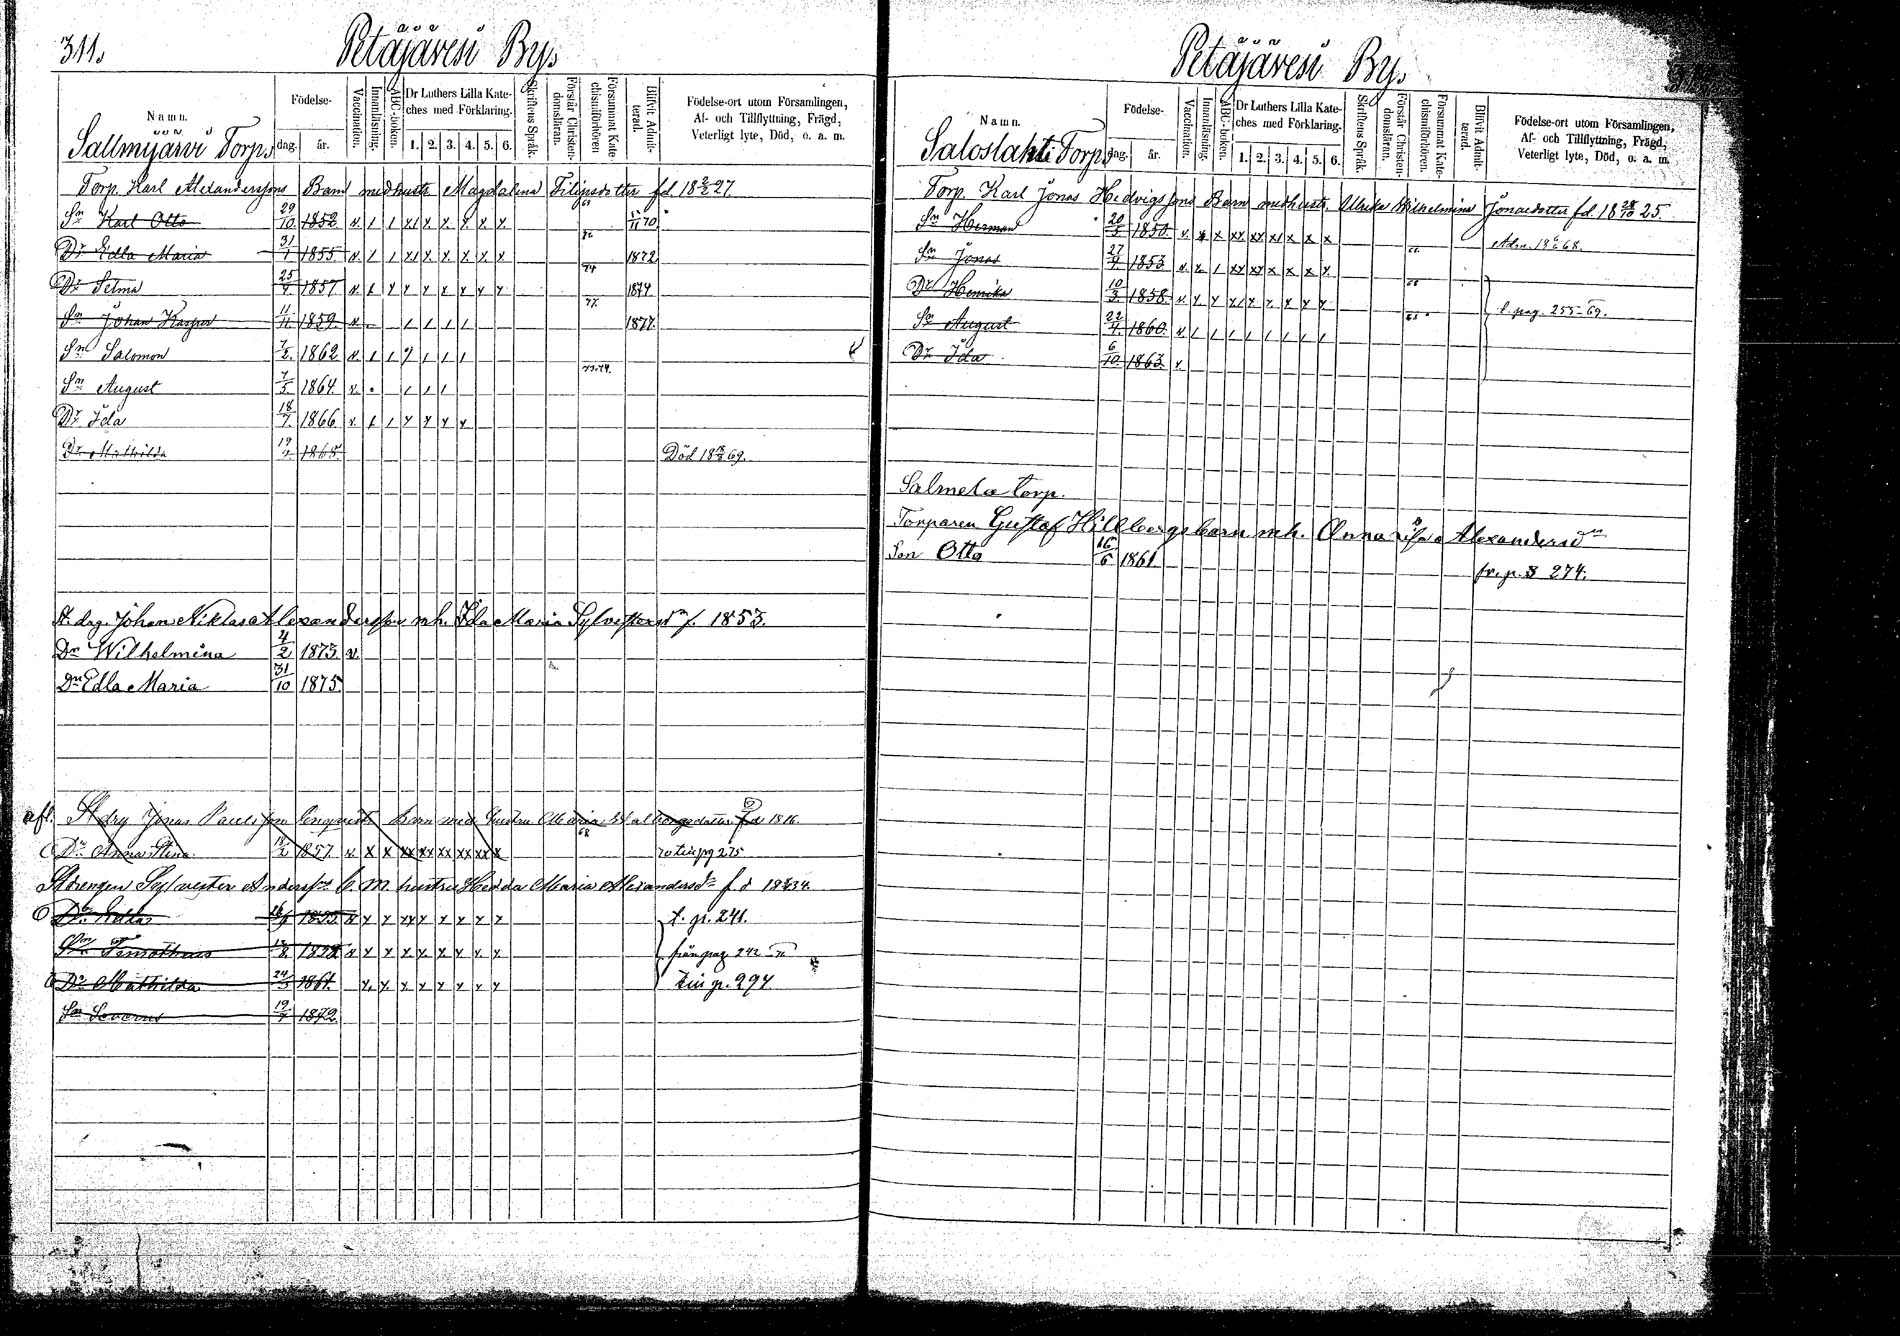 311.
Petäjävesi By.
Namn.
Födelse-
dag.
år.
Vaccination.
Innanläsning.
ABC-boken.
Dr Luthers Lilla Kate-
ches med Förklaring.
1. 2. 3. 4. 5. 6.
Skriftens Språk.
Förstår Christen-
domsläran.
Försummat Kate
chismiförhören
Blifvit Admit-
terad.
Födelse-ort utom Församlingen,
Af- och Tillflyttning, Frägd,
Veterligt lyte, Död, o. a. m.
Sallmijärvi Torp.
Torp. Karl Alexanderssons Barn med hustr. Magdalena Filipsdotter fd. 18 2/2 27.
Sn Karl Otto 29/10 1852
Dr Edla Maria 31/1 1855 1872
Dr Selma 25/4 1857 1874
Sn Johan Kasper 11/11 1859 1877
Sn Salomon 7/2 1862
Sn August 7/5 1864
Dr Ida 18/7 1866
Dr Mathilda 1868 Död 69.
St. drg. Johan Niklas Alexandersson mh. Ida Maria Sylvestersdr f. 1853.
Dr Wilhelmina 4/2 1873
Dr Edla Maria 31/10 1875
afl. St drg Jonas Paulsson Barn med hustru Maria fd 1816.
Dr Anna Stina 1857 till pg 275
Stdrengen Sylvester Anderss. b. m. hustru Hedda Maria Alexandersdr f d 1834.
1855 t. p. 241.
Sn Timotheus 1858 från pag 242
Dr Mathilda 24/3 1861 till p. 294
Sn Severus 19/7 1872
Petäjävesi By.
Namn.
Födelse-
dag.
år.
Vaccination.
Innanläsning.
ABC-boken.
Dr Luthers Lilla Kate-
ches med Förklaring.
1. 2. 3. 4. 5. 6.
Skriftens Språk.
Förstår Christen-
domsläran.
Försummat Kate-
chismiförhören.
Blifvit Admit-
terad.
Födelse-ort utom Församlingen,
Af- och Tillflyttning, Frägd,
Veterligt lyte, Död, o. a. m.
Saloslahti Torp
Torp. Karl Jonas Hedvigssons Barn med hustr. Ulrika Wilhelmina Jonaedotter fd. 18 28/10 25.
Sn Herman 20/5 1850 Adm. 18 68.
Sn Jonas 27/4 1853
Dr Henrika 10/3 1858 t. pag. 255 69.
Sn August 22/4 1860
Dr Ida 6/10 1863
Salmela torp.
Torparen Gustaf Hillbergs barn mh. Anna Alexandersdr
Son Otto 16/6 1861
fr. p. 274.